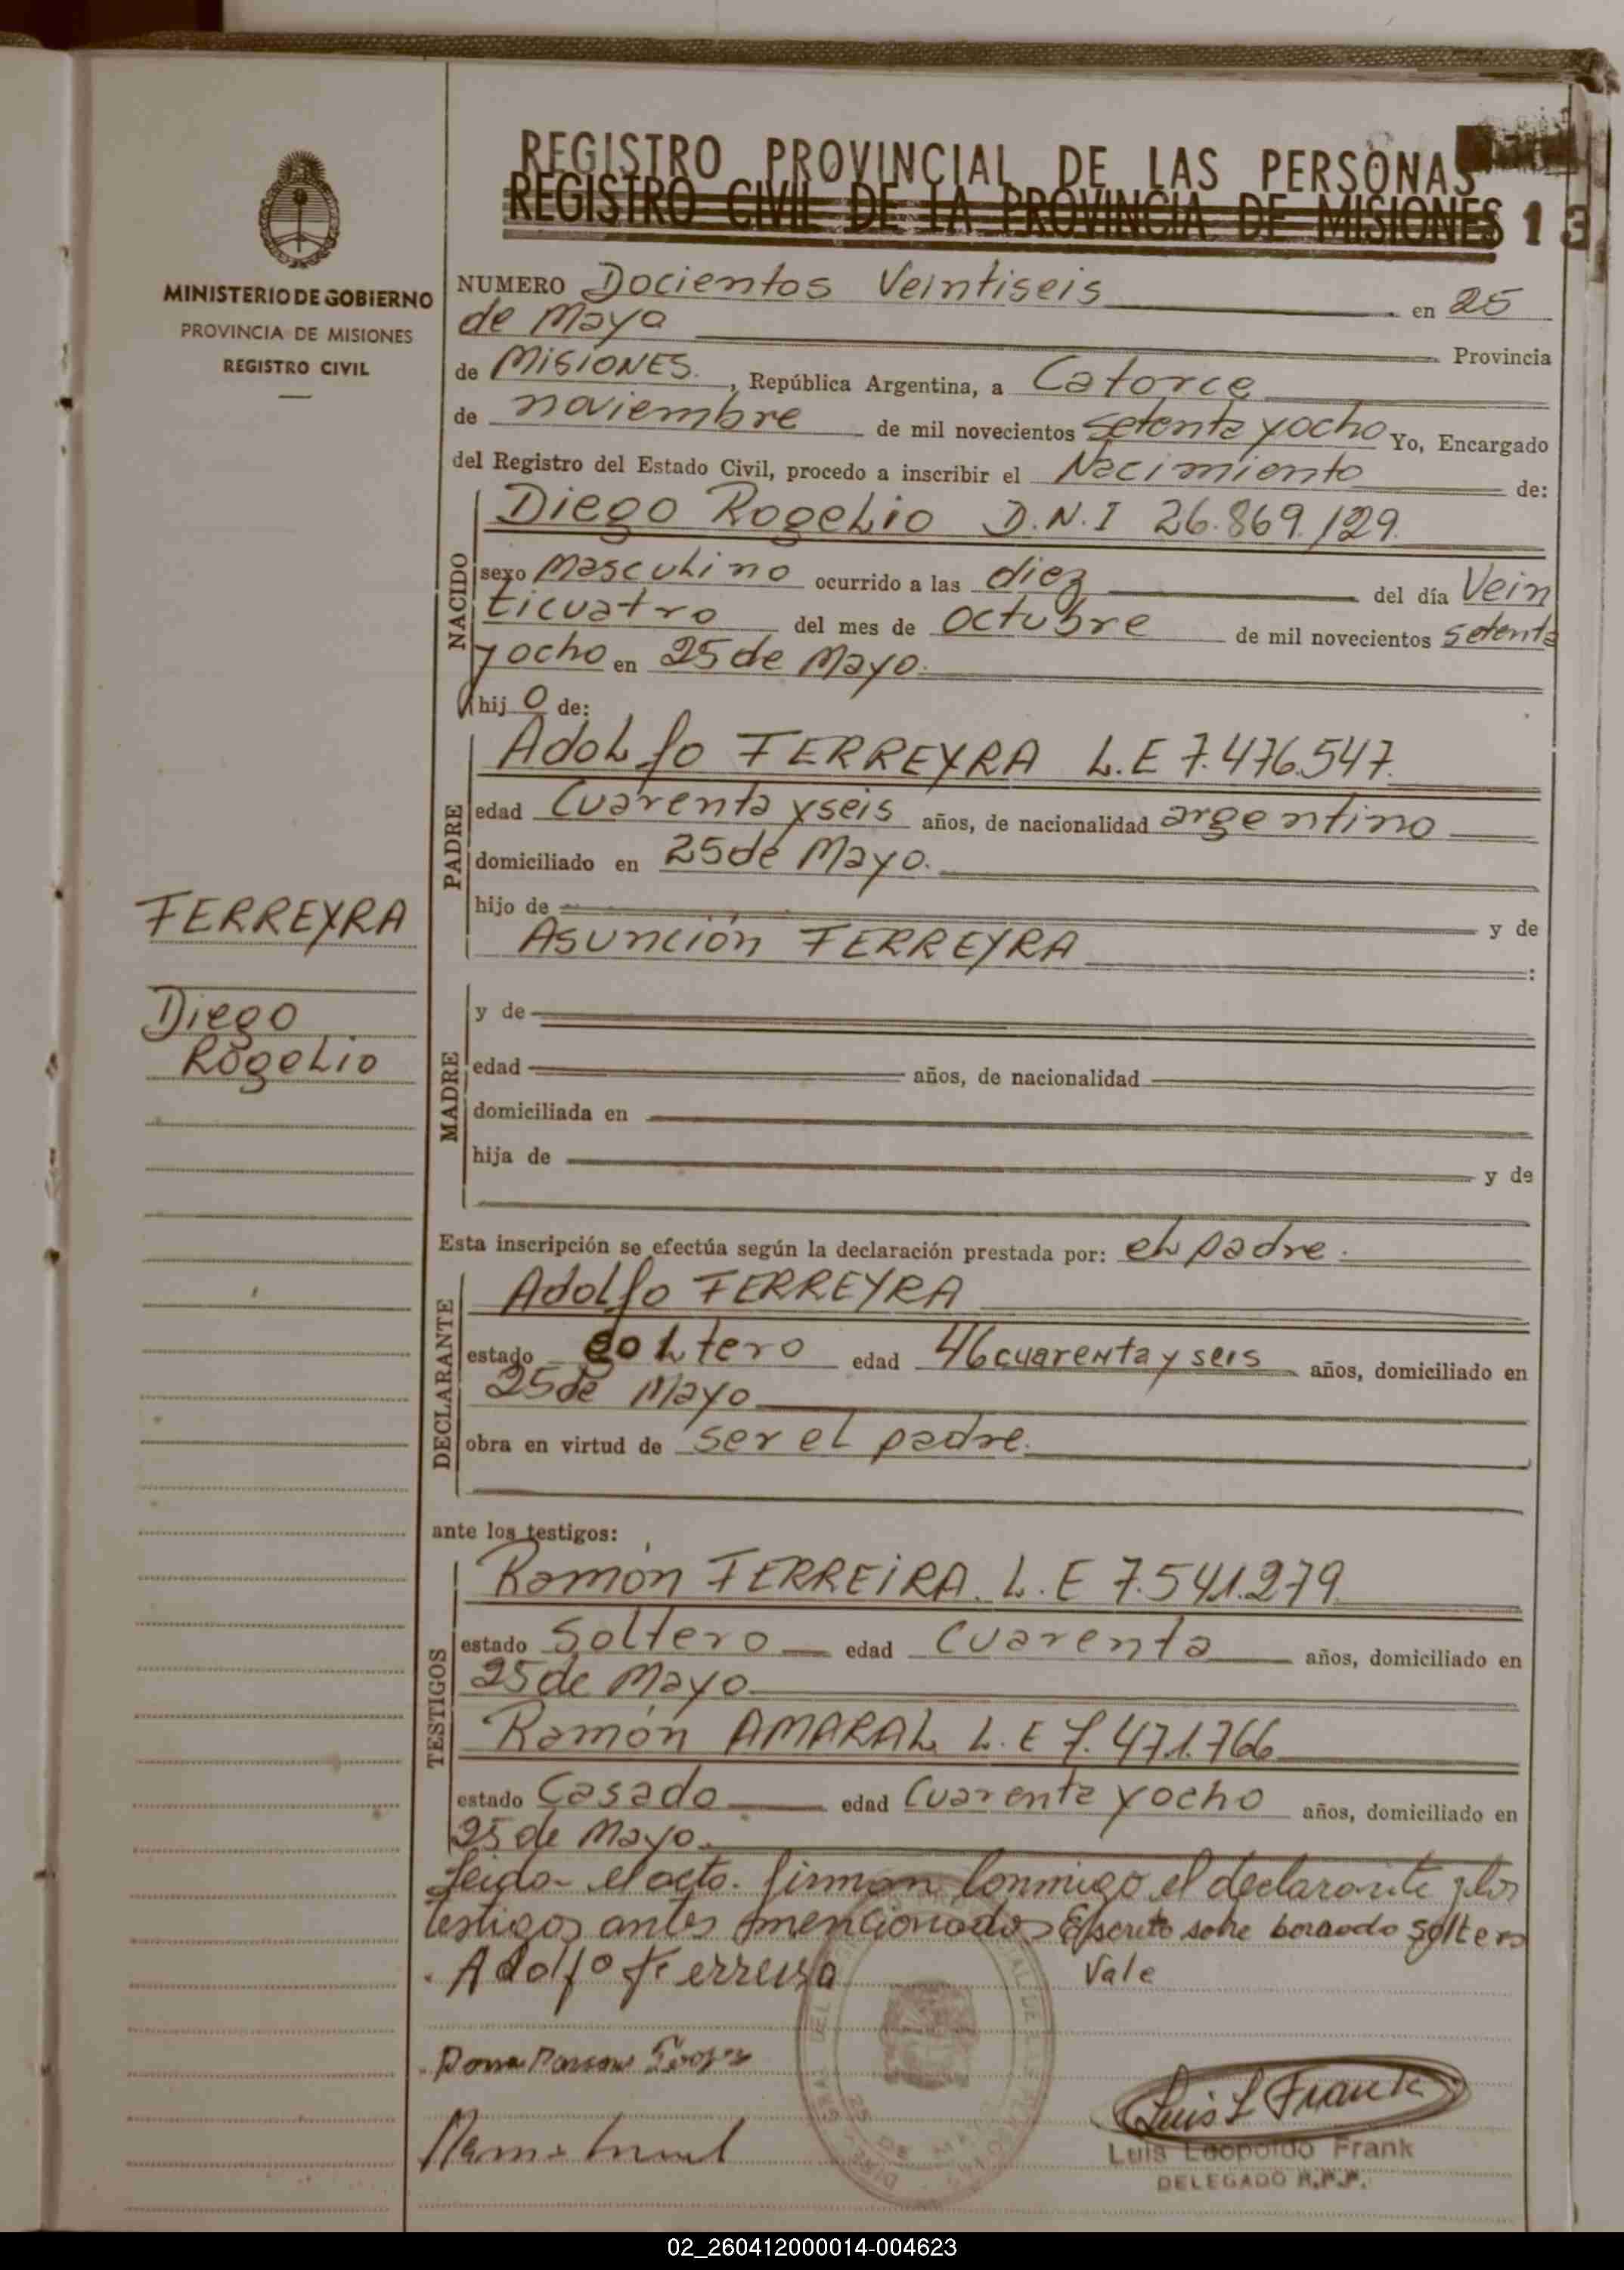 REGISTRO PROVINCIAL DE LAS PERSONAS
REGISTRO CIVIL DE LA PROVINCIA DE MISIONES 13
MINISTERIO DE GOBIERNO
PROVINCIA DE MISIONES
REGISTRO CIVIL
NUMERO Docientos Veintiseis en 25
de Mayo Provincia
de MISIONES, República Argentina, a Catorce
de noviembre de mil novecientos setenta y ocho Yo, Encargado
del Registro del Estado Civil, procedo a inscribir el Nacimiento de:
NACIDO
Diego Rogelio D.N.I 26.869.129.
sexo Masculino ocurrido a las diez del día Vein
ticuatro del mes de octubre de mil novecientos setenta
y ocho en 25 de Mayo.
hijo de:
PADRE
Adolfo FERREYRA L.E 7.476.547.
edad Cuarenta y seis años, de nacionalidad argentino
domiciliado en 25 de Mayo.
hijo de y de
Asunción FERREYRA :
FERREYRA
Diego
Rogelio
MADRE
y de
edad años, de nacionalidad
domiciliada en
hija de y de
Esta inscripción se efectúa según la declaración prestada por: el padre.
DECLARANTE
Adolfo FERREYRA
estado soltero edad 46 cuarenta y seis años, domiciliado en
25 de Mayo
obra en virtud de ser el padre.
ante los testigos:
TESTIGOS
Ramón FERREIRA. L.E 7.541.279
estado Soltero edad Cuarenta años, domiciliado en
25 de Mayo
Ramón AMARAL L.E 7.471.766
estado Casado edad Cuarenta y ocho años, domiciliado en
25 de Mayo.
Leida el acta. firman conmigo el declarante y los
testigos antes mencionados Escrito sobre borrado soltero
Adolfo Ferreyra Vale
25 DE MAYO
Luis L Frank
Luis Leopoldo Frank
DELEGADO R.P.P.
02_260412000014-004623